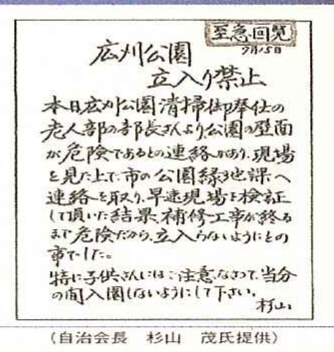 至急回覧
9月15日
広刈公園
立入り禁止
本日広刈公園清掃御奉仕の
老人部の部長さんより公園の壁面
が危険であるとの連絡があり、現場
を見た上で、市の公園緑地課へ
連絡を取り、早速現場を検証
して頂いた結果、補修工事が終る
まで危険だから、立入らないようにとの
事でした。
特に子供さんにはご注意なさって、当分
の間入園しないようにして下さい。
杉山
(自治会長 杉山 茂氏提供)